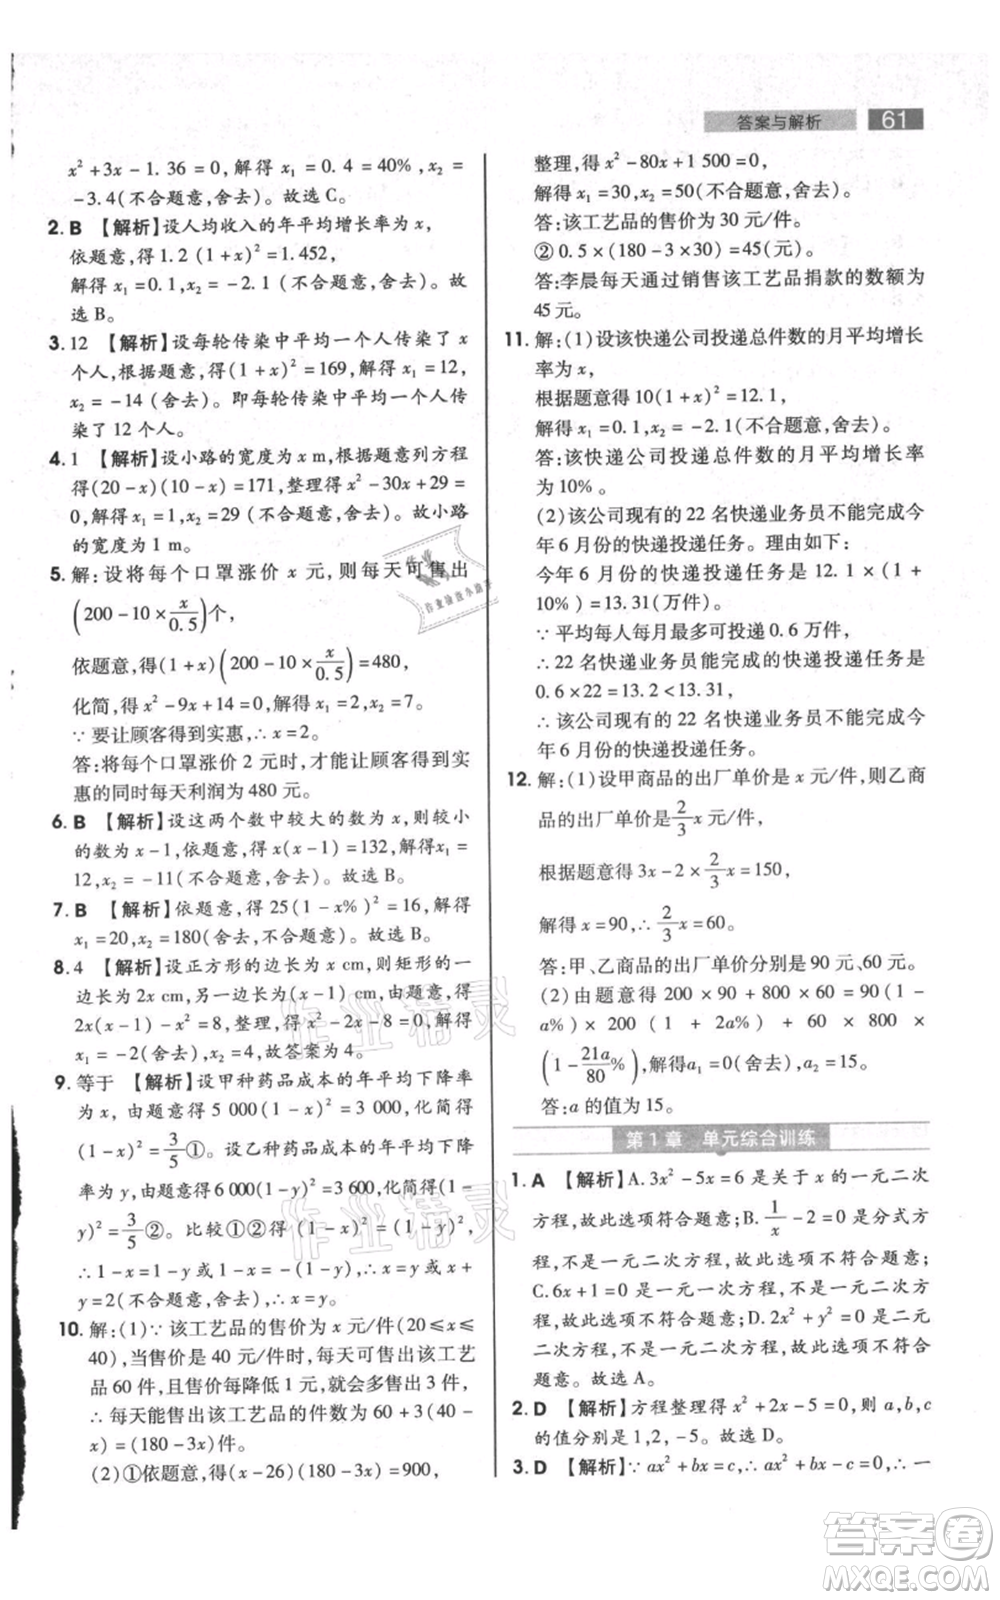 答案与解析 61
x²+3x-1.36=0,解得 x₁=0.4=40%,x₂=
-3.4(不合题意,舍去)。故选C。
2. B 【解析】设人均收入的年平均增长率为 x,
依题意,得1.2(1+x)²=1.452,
解得 x₁=0.1,x₂=-2.1(不合题意,舍去)。故
选B。
3. 12 【解析】设每轮传染中平均一个人传染了 x
个人,根据题意,得(1+x)²=169,解得 x₁=12,
x₂=-14(舍去)。即每轮传染中平均一个人传
染了12个人。
4. 1 【解析】设小路的宽度为 x m,根据题意列方程
得(20-x)(10-x)=171,整理得 x²-30x+29=
0,解得 x₁=1,x₂=29(不合题意,舍去)。故小路
的宽度为1 m。
5. 解:设将每个口罩涨价 x 元,则每天可售出
(200-10×x/0.5)个,
依题意,得(1+x)(200-10×x/0.5)=480,
化简,得 x²-9x+14=0,解得 x₁=2,x₂=7。
∵要让顾客得到实惠,∴x=2。
答:将每个口罩涨价2元时,才能让顾客得到实
惠的同时每天利润为480元。
6. B 【解析】设这两个数中较大的数为 x,则较小
的数为 x-1,依题意,得 x(x-1)=132,解得 x₁
=12,x₂=-11(不合题意,舍去)。故选B。
7. B 【解析】依题意,得25(1-x%)²=16,解得
x₁=20,x₂=180(舍去,不合题意)。故选B。
8. 4 【解析】设正方形的边长为 x cm,则矩形的一
边长为2x cm,另一边长为(x-1)cm,由题意,得
2x(x-1)-x²=8,整理,得 x²-2x-8=0,解得
x₁=-2(舍去),x₂=4,故答案为4。
9. 等于 【解析】设甲种药品成本的年平均下降率
为 x,由题意,得5 000(1-x)²=3 000,化简,得
(1-x)²=3/5①。设乙种药品成本的年平均下降
率为 y,由题意,得6 000(1-y)²=3 600,化简,得(1-
y)²=3/5②。比较①②,得(1-x)²=(1-y)²,
∴1-x=1-y 或1-x=-(1-y),∴x=y 或 x+
y=2(不合题意,舍去),∴x=y。
10. 解:(1)∵该工艺品的售价为 x 元/件(20≤x≤
40),当售价是40元/件时,每天可售出该工艺
品60件,且售价每降低1元,就会多售出3件,
∴每天能售出该工艺品的件数为60+3(40-
x)=(180-3x)件。
(2)①依题意,得(x-26)(180-3x)=900,
整理,得 x²-80x+1 500=0,
解得 x₁=30,x₂=50(不合题意,舍去)。
答:该工艺品的售价为30元/件。
②0.5×(180-3×30)=45(元)。
答:李晨每天通过销售该工艺品捐款的数额为
45元。
11. 解:(1)设该快递公司投递总件数的月平均增长
率为 x,
根据题意得10(1+x)²=12.1,
解得 x₁=0.1,x₂=-2.1(不合题意,舍去)。
答:该快递公司投递总件数的月平均增长率
为10%。
(2)该公司现有的22名快递业务员不能完成今
年6月份的快递投递任务。理由如下:
今年6月份的快递投递任务是12.1×(1+
10%)=13.31(万件)。
∵平均每人每月最多可投递0.6万件,
∴22名快递业务员能完成的快递投递任务是
0.6×22=13.2<13.31,
∴该公司现有的22名快递业务员不能完成今
年6月份的快递投递任务。
12. 解:(1)设甲商品的出厂单价是 x 元/件,则乙商
品的出厂单价是2/3x 元/件,
根据题意得3x-2×2/3x=150,
解得 x=90,∴2/3x=60。
答:甲、乙商品的出厂单价分别是90元、60元。
(2)由题意得200×90+800×60=90(1-
a%)×200(1+2a%)+60×800×
(1-21a/80%),解得a₁=0(舍去),a₂=15。
答:a 的值为15。
第1章 单元综合训练
1. A 【解析】A.3x²-5x=6是关于 x 的一元二次
方程,故此选项符合题意;B.1/x-2=0是分式方
程,不是一元二次方程,故此选项不符合题意;
C.6x+1=0是一元一次方程,不是一元二次方
程,故此选项不符合题意;D.2x²+y²=0有两个
未知数,不是一元二次方程,故此选项不符合
题意。故选A。
2. D 【解析】方程整理得 x²+2x-5=0,则 a,b,c
的值分别是1,2,-5。故选D。
3. D 【解析】∵ax²+bx=c,∴ax²+bx-c=0,∴一
作业精灵
作业精灵
答案圈
MXQE.COM